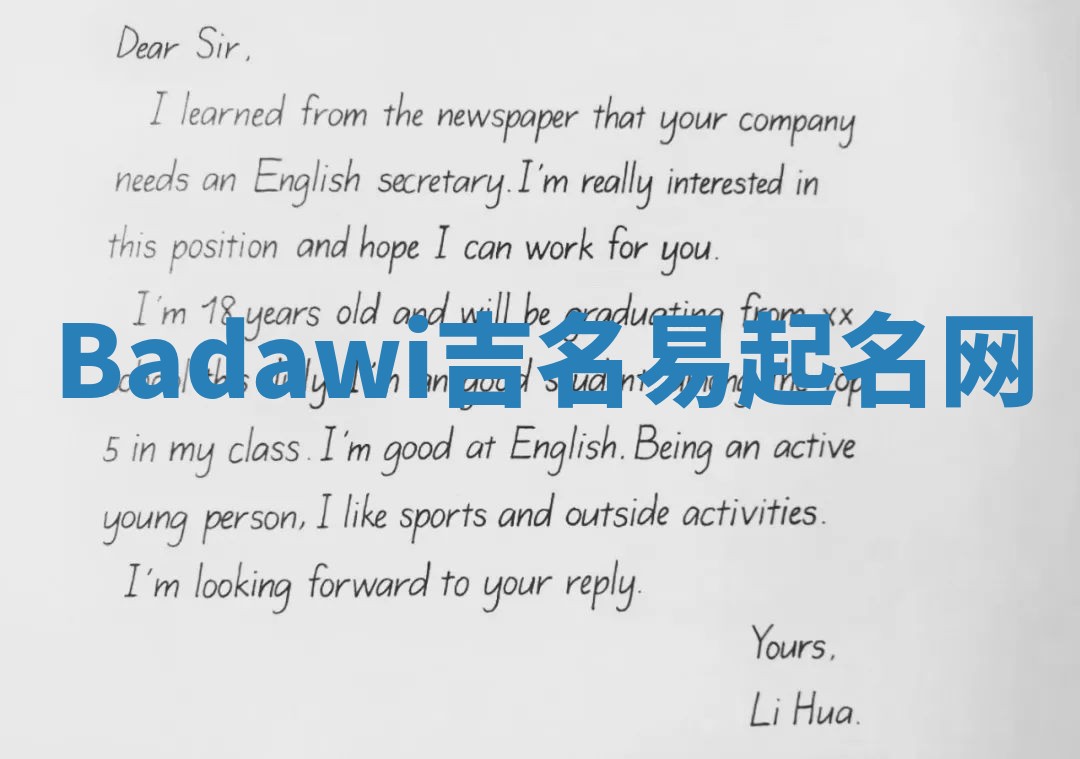 Dear Sir,
I learned from the newspaper that your company
needs an English secretary. I'm really interested in
this position and hope I can work for you.
I'm 18 years old and will be graduating from xx
Badawi吉名易起名网
school this July. I'm an good student among the top
5 in my class. I'm good at English. Being an active
young person, I like sports and outside activities.
I'm looking forward to your reply.
Yours,
Li Hua.